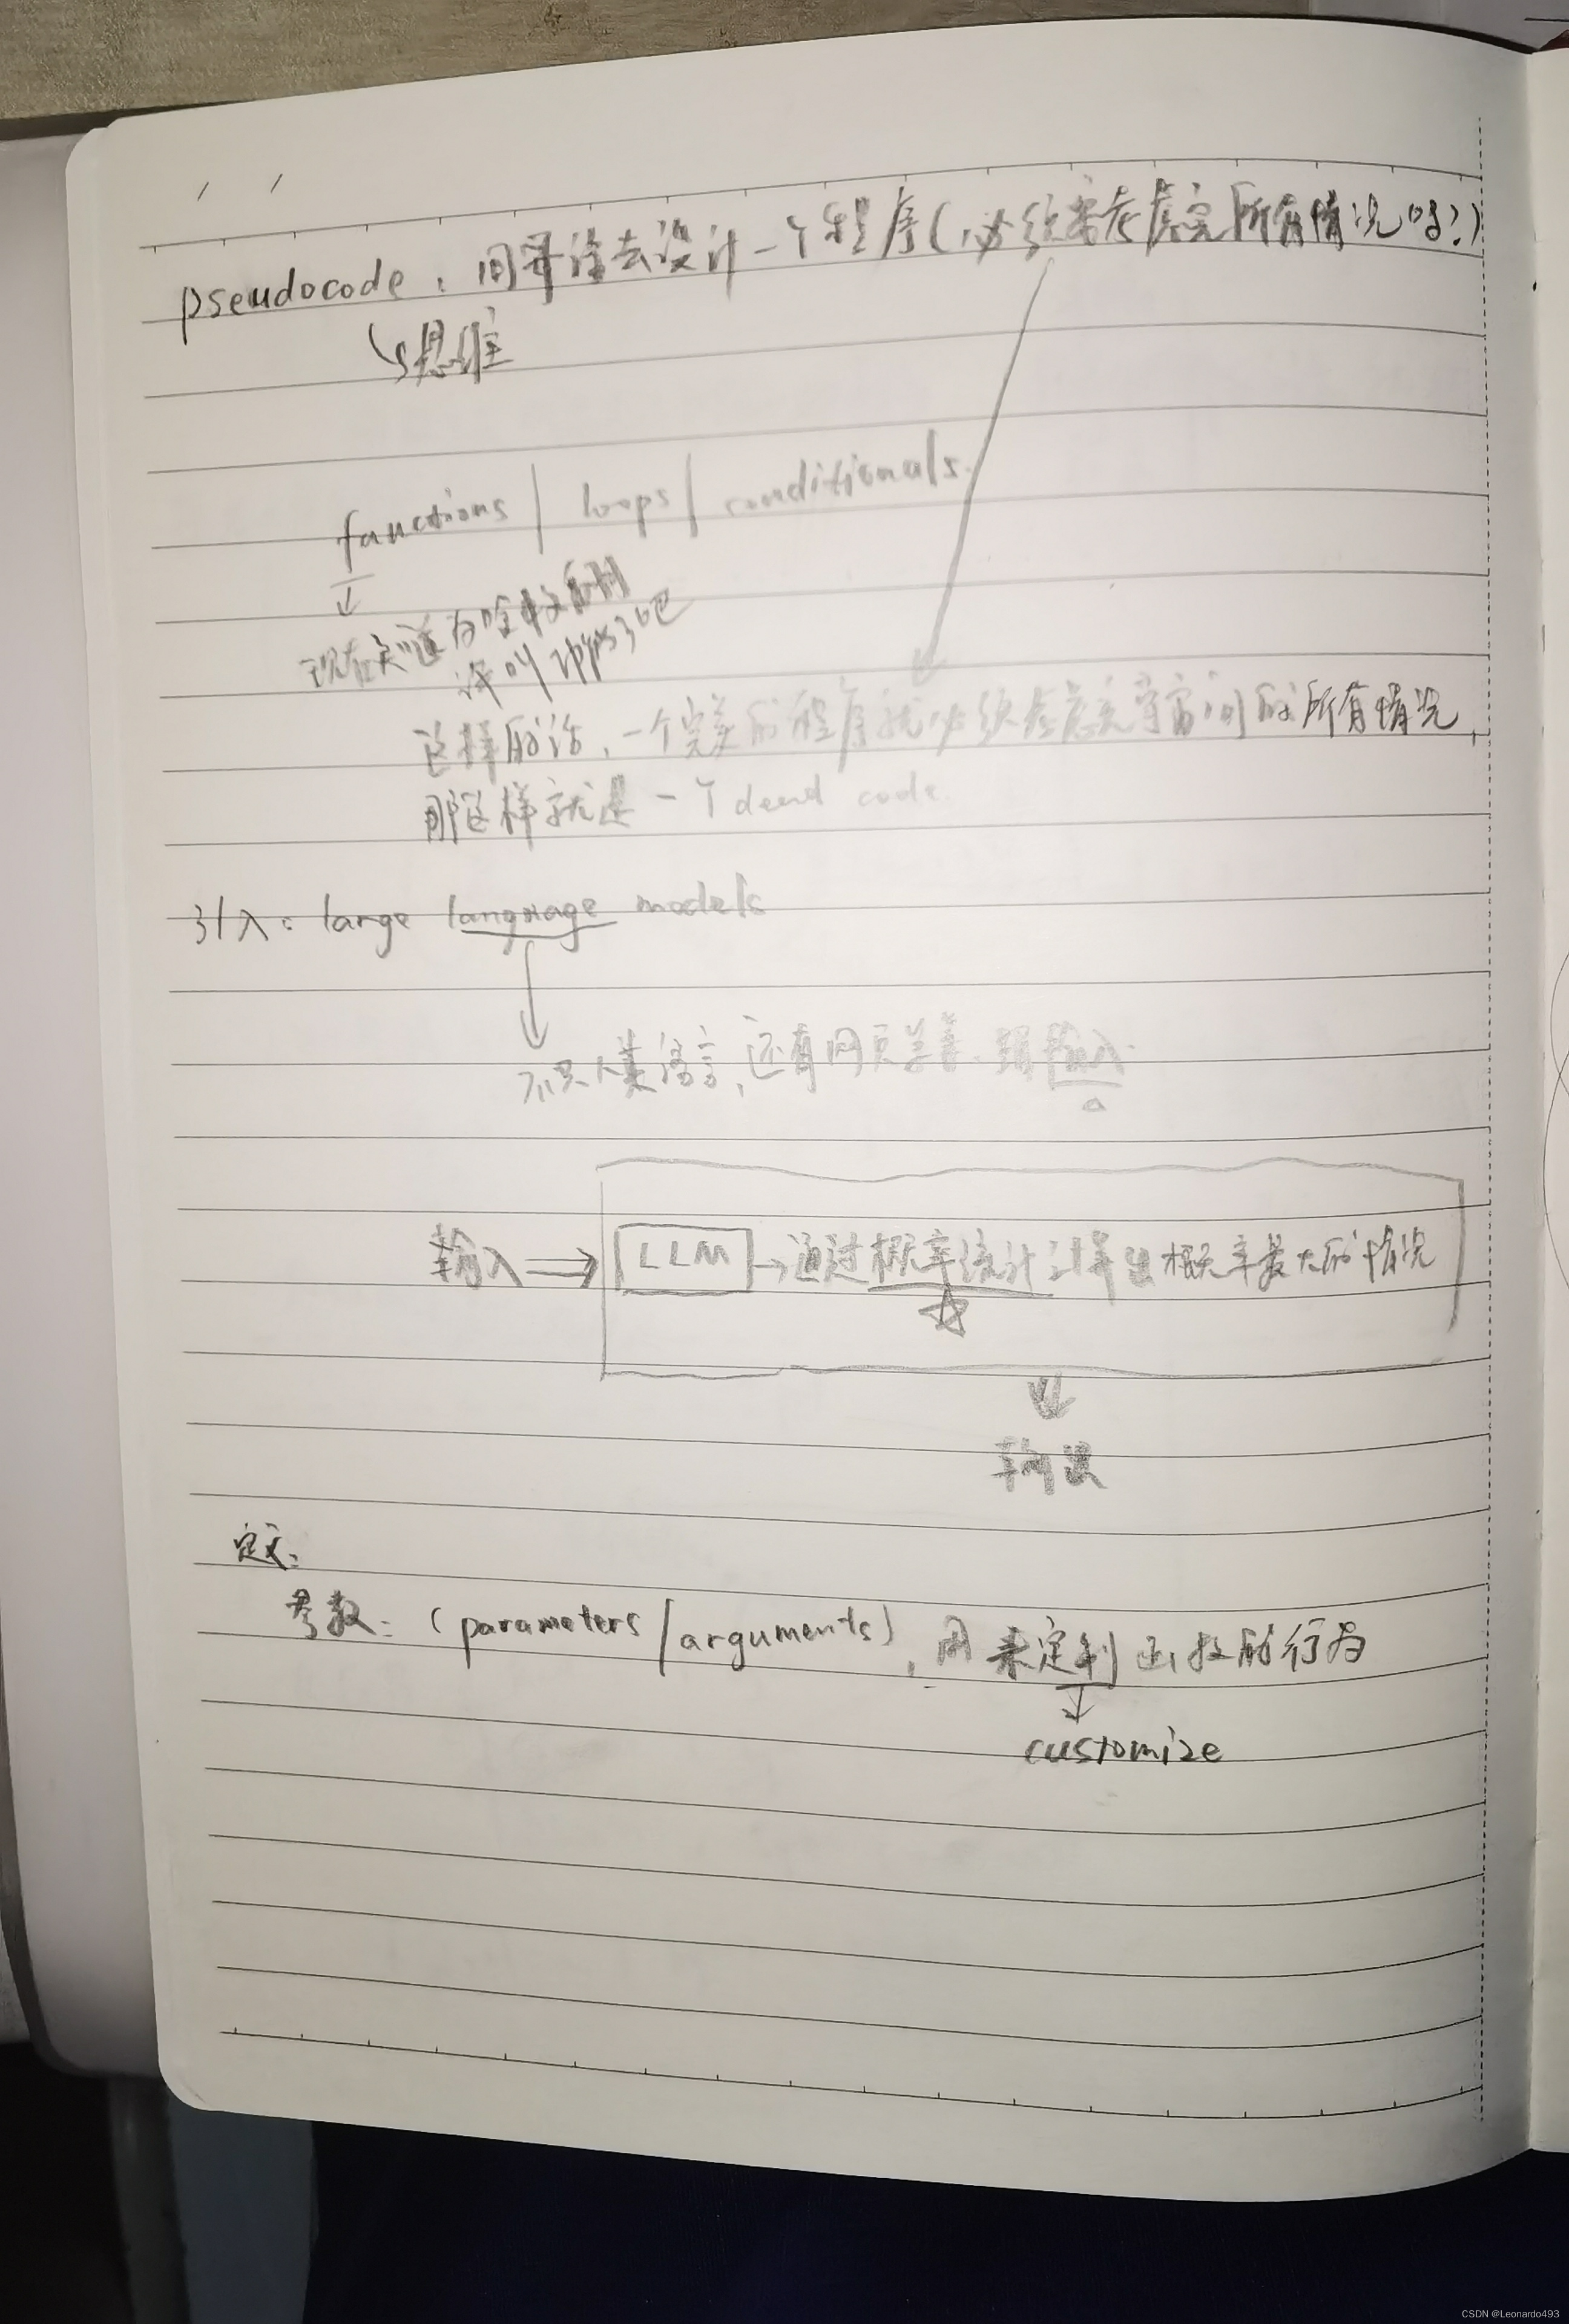 pseudocode：用母语去设计一个程序（必须需考虑完所有情况吗？）
↳思维
functions / loops / conditionals.
现在知道为啥
叫 了吧
这样的话，一个完美的程序就必须考虑完宇宙间的所有情况，
那这样就是一个dead code.
引入：large language models
不只人类语言，还有网页 输入.
a
输入 ⇒ LLM → 通过概率统计计算出概率最大的情况
输出
定义：
参数：（parameters/arguments），用来定制函数的行为
customize
CSDN @Leonardo493